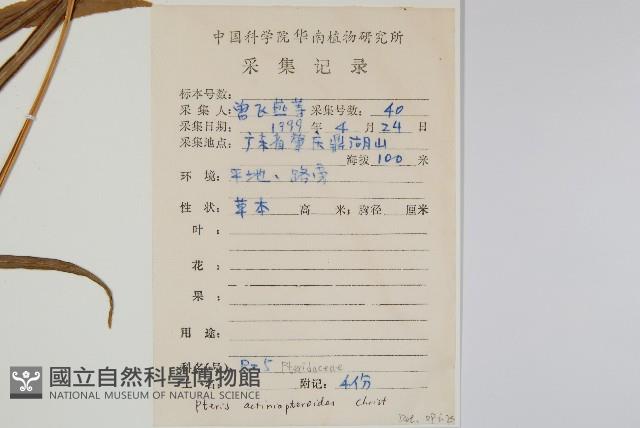 中国科学院华南植物研究所
采集记录
标本号数:
采集人: 曾飞燕等 采集号数: 40
采集日期: 1999 年 4 月 24 日
采集地点: 广东省肇庆鼎湖山
海拔 100 米
环境: 平地、路旁
性状: 草本 高 米; 胸径 厘米
叶:
花:
果:
用途:
科名(号) P25 Pteridaceae
学名 附记: 4份
Pteris actiniopteroides Christ
國立自然科學博物館
NATIONAL MUSEUM OF NATURAL SCIENCE